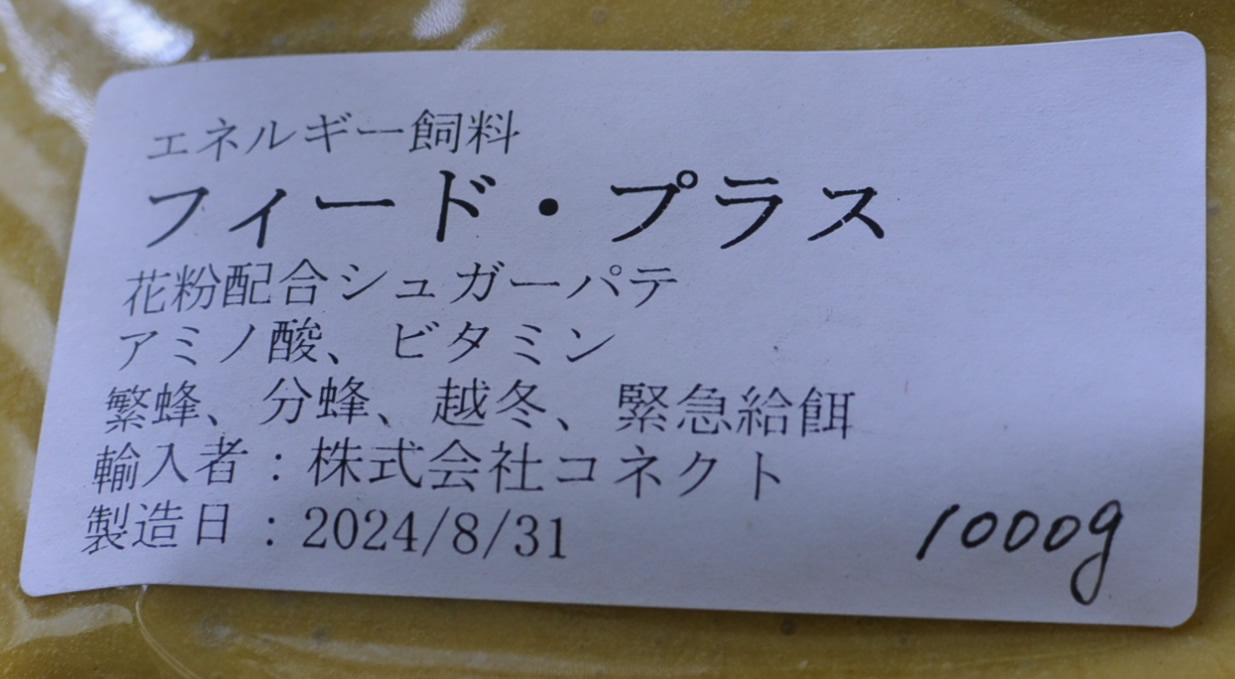 エネルギー飼料
フィード・プラス
花粉配合シュガーパテ
アミノ酸、ビタミン
繁蜂、分蜂、越冬、緊急給餌
輸入者：株式会社コネクト
製造日：2024/8/31
1000g